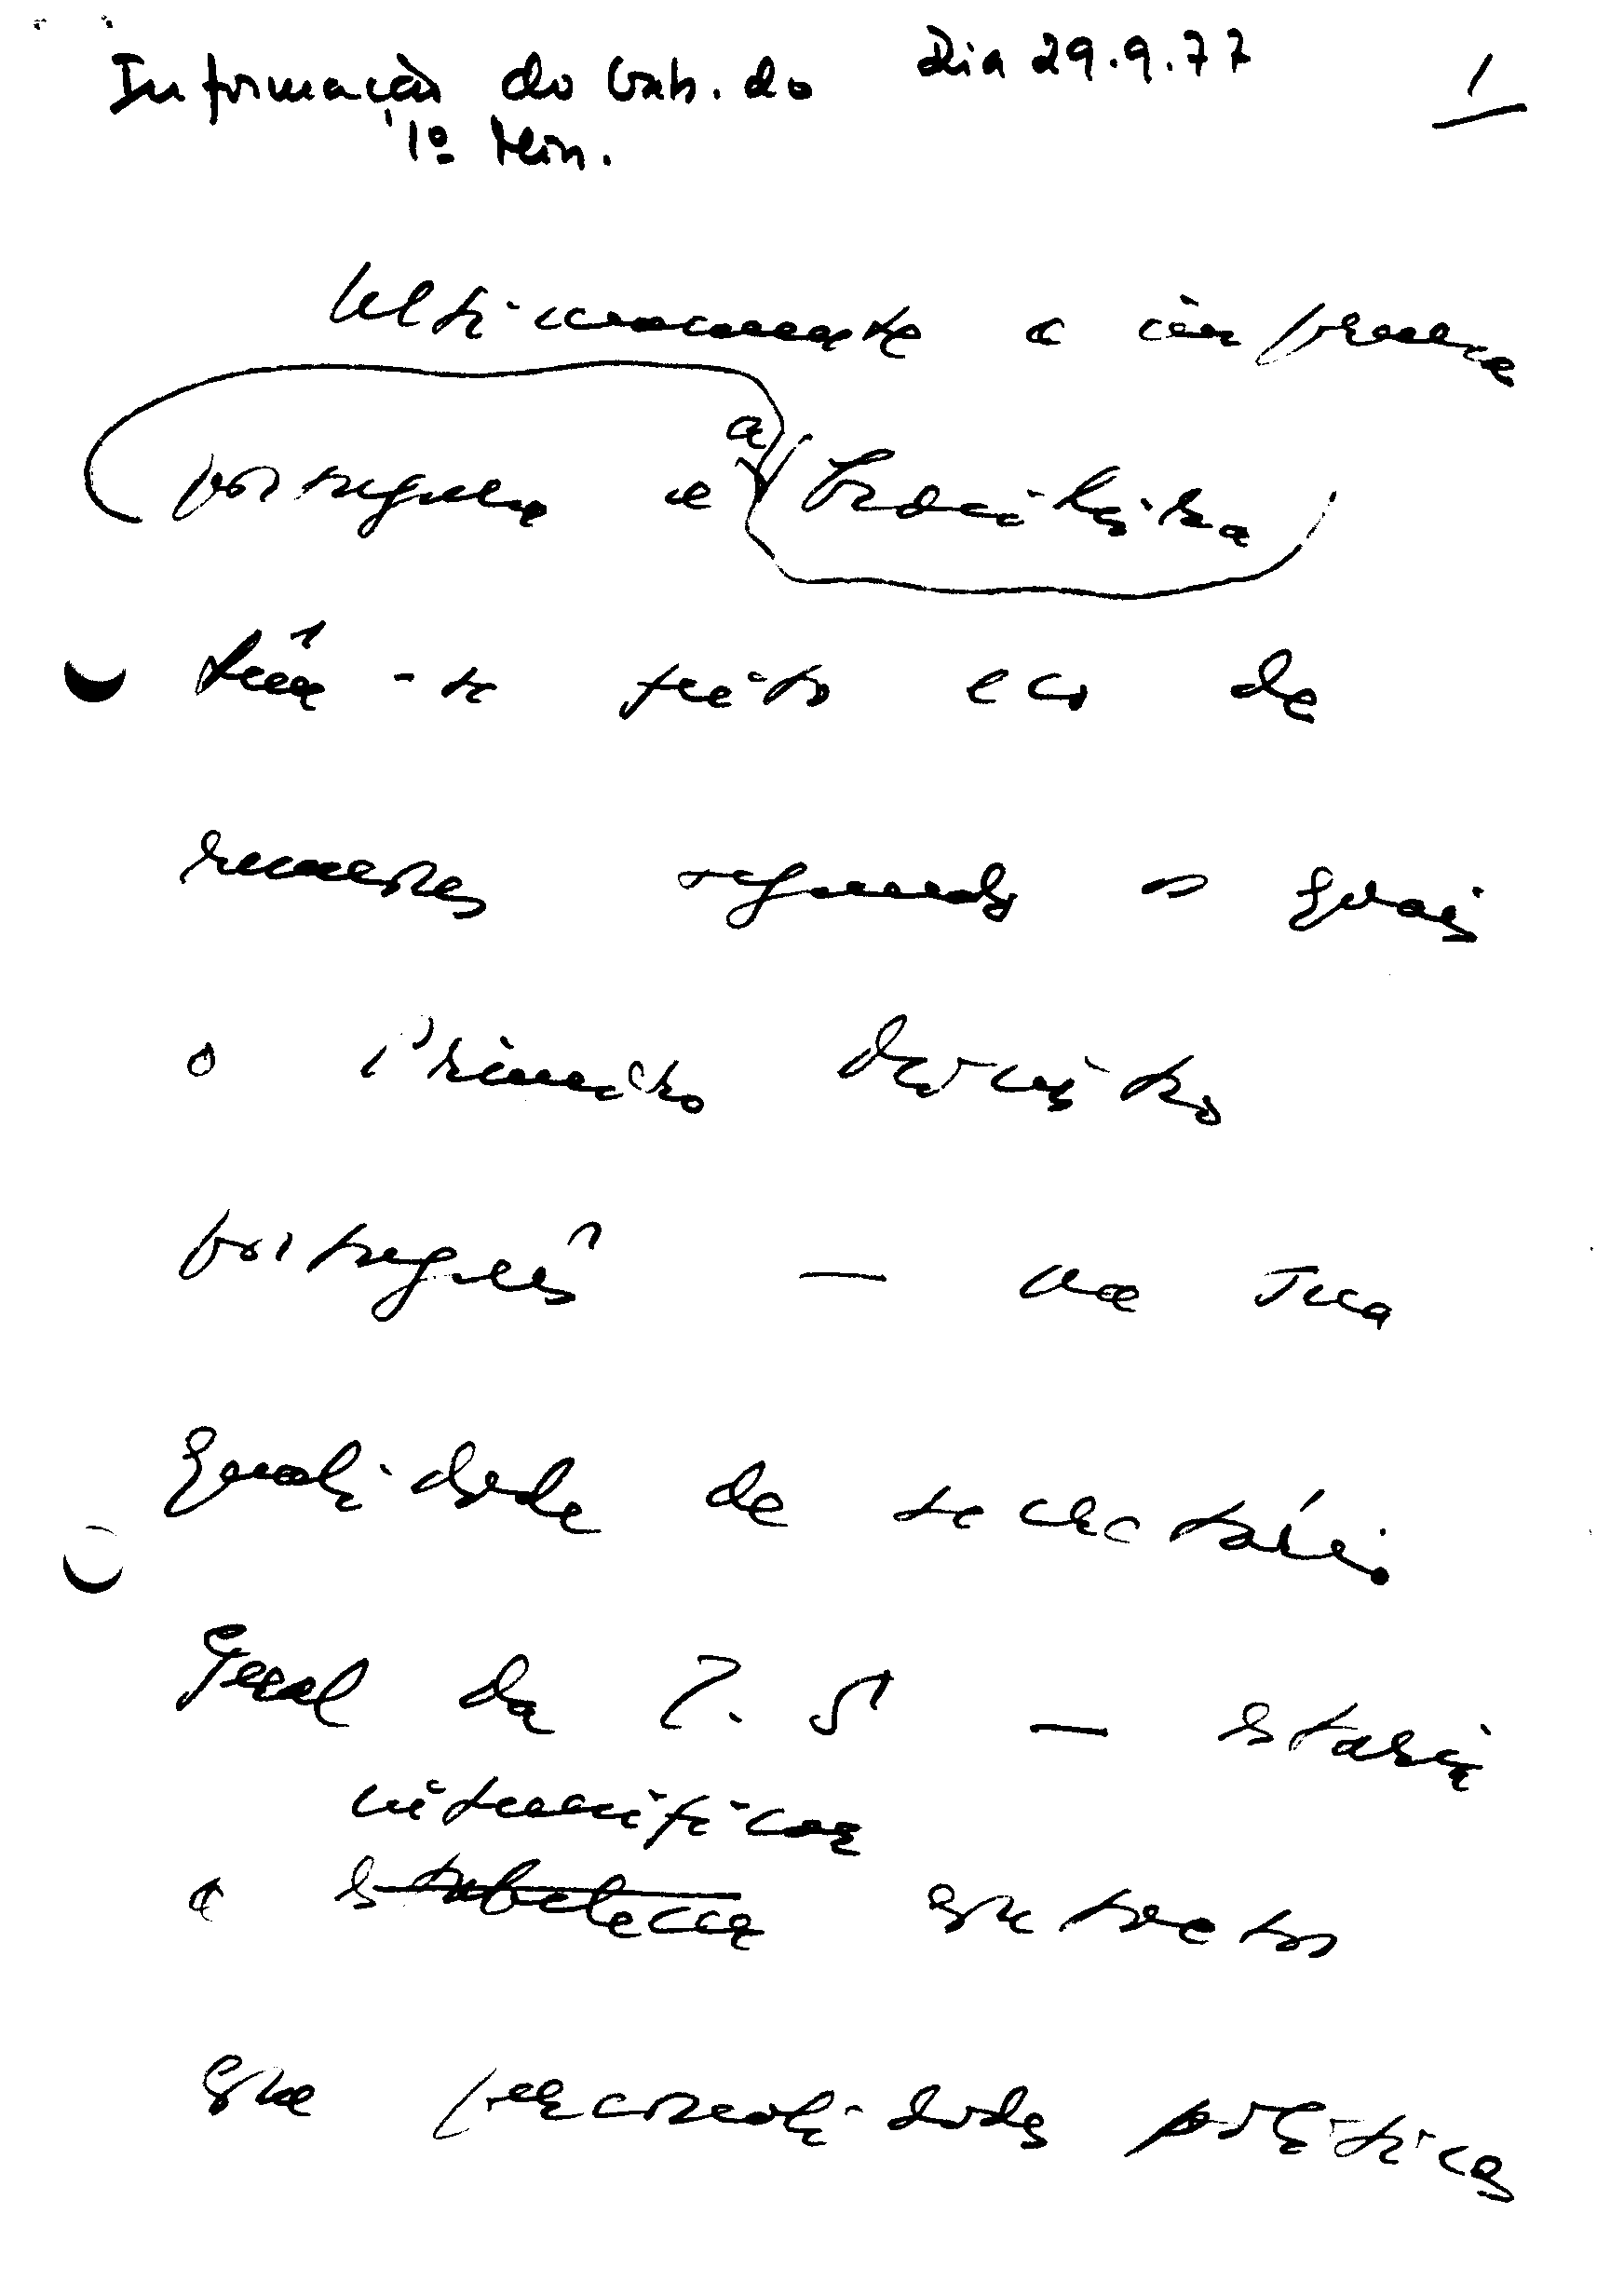 Informação do Gab. do Dia 29.9.77 1
1º Min.
Ultimamente a imprensa
portuguesa e a brasileira
têm-se feito eco de
rumores segundo os quais
o Primeiro Ministro
português — na sua
qualidade de secretário
geral do P. S — estaria
intensificar
a estabelecer contactos
com personalidades políticas